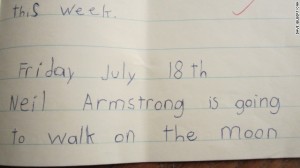 this week.
Friday July 18th
Neil Armstrong is going
to walk on the moon